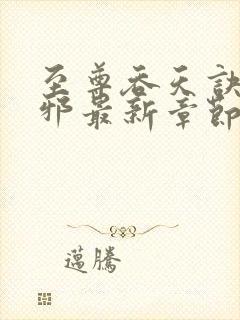 至尊吞天诀
邪最新章节
邁騰